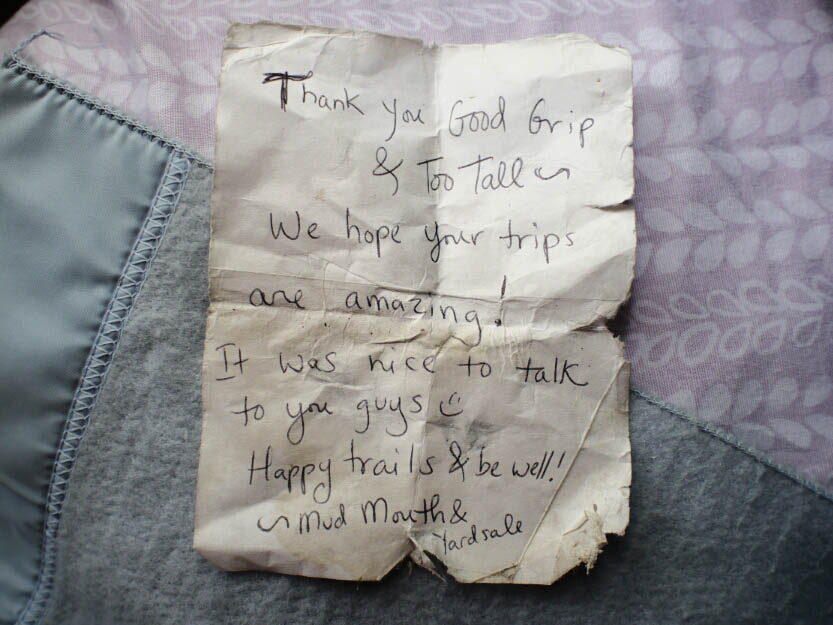 Thank you Good Grip
& Too Tall ~
We hope your trips
are amazing!
It was nice to talk
to you guys ☺
Happy trails & be well!
~ Mud Mouth &
Yardsale